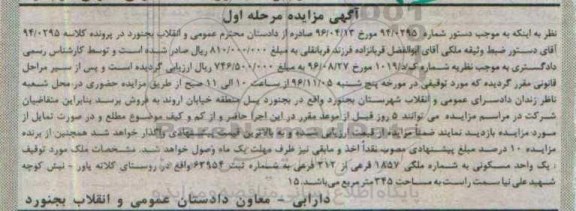 آگهی مزایده مرحله اول
نظر به اینکه به موجب دستور شماره ۹۴/۰۲۹۵ مورخ ۹۶/۰۴/۱۳ صادره از دادستان محترم عمومی و انقلاب بجنورد در پرونده کلاسه ۹۴/۰۲۹۵
آقای دستور ضبط وثیقه ملکی آقای ابوالفضل قربانزاده فرزند قربانقلی به مبلغ ۸۱۰/۰۰۰/۰۰۰ ریال صادر شده است و توسط کارشناس رسمی
دادگستری به موجب نظریه شماره ک/د/۱۰۱۹ مورخ ۹۶/۰۸/۲۷ به مبلغ ۷۴۶/۵۰۰/۰۰۰ ریال ارزیابی گردیده است و پس از سیر مراحل
قانونی مقرر گردیده که مورد توقیفی در مورخه پنج شنبه ۹۶/۱۱/۰۵ از ساعت ۱۰ الی ۱۱ صبح از طریق مزایده حضوری در محل شعبه
ناظر زندان دادسرای عمومی و انقلاب شهرستان بجنورد واقع در بجنورد پل منطقه خیابان اروند به فروش برسد بنابراین متقاضیان
شرکت در مراسم مزایده می توانند ۵ روز قبل از موعد مقرر در این اجرا حاضر و از کم و کیف موضوع مطلع و در صورت تمایل از
مورد مزایده بازدید نمایند ضمناً مزایده از قیمت ارزیابی شروع به بالاترین واگذار خواهد شد همچنین از برنده
مزایده ۱۰ درصد مبلغ پیشنهادی مصوب نقداً اخذ و مابقی نیز ظرف مهلت یک ماه وصول خواهد شد. مشخصات ملک مورد توقیف
، یک واحد مسکونی به شماره ملکی ۱۸۵۷ فرعی از ۳۱۲ فرعی به شماره ثبتی ۶۳۹۵۴ واقع در روستای کلاته یاور - نبش کوچه
شهید علی نیا سمت راست به مساحت ۲۴۵ متر مربع می‌باشد. ۱۵
دارابی - معاون دادستان عمومی و انقلاب بجنورد